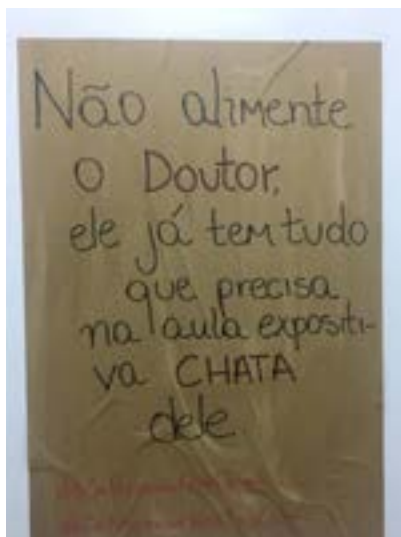 Não alimente
o Doutor,
ele já tem tudo
que precisa
na aula expositi-
va CHATA
dele.